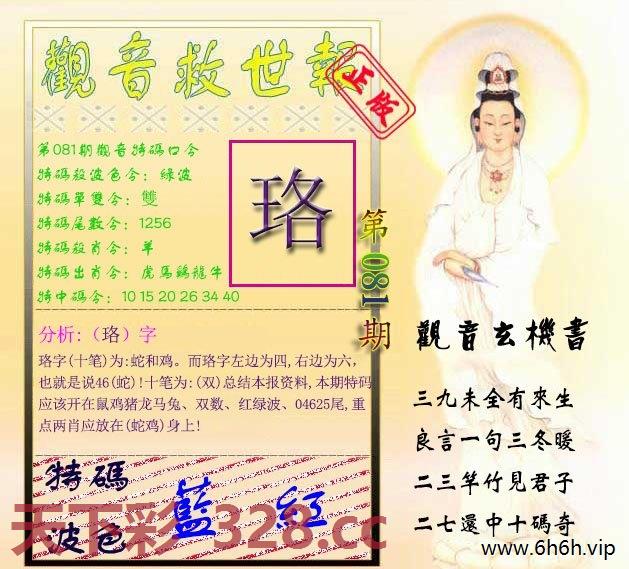 觀音救世報
正版
第081期觀音特碼口令
特碼殺波色令：綠波
特碼單雙令：雙
特碼尾數令：1256
特碼殺肖令：羊
特碼出肖令：虎馬鷄龍牛
特中碼令：10 15 20 26 34 40
珞
第081期
分析:（珞）字
珞字(十笔)为:蛇和鸡。而珞字左边为四,右边为六，
也就是说46(蛇)!十笔为:(双)总结本报资料,本期特码
应该开在鼠鸡猪龙马兔、双数、红绿波、04625尾,重
点两肖应放在(蛇鸡)身上!
特碼
波色
藍 紅
天下彩 328.cc
觀音玄機書
三九未全有來生
良言一句三冬暖
二三竿竹見君子
二七還中十碼奇
www.6h6h.vip